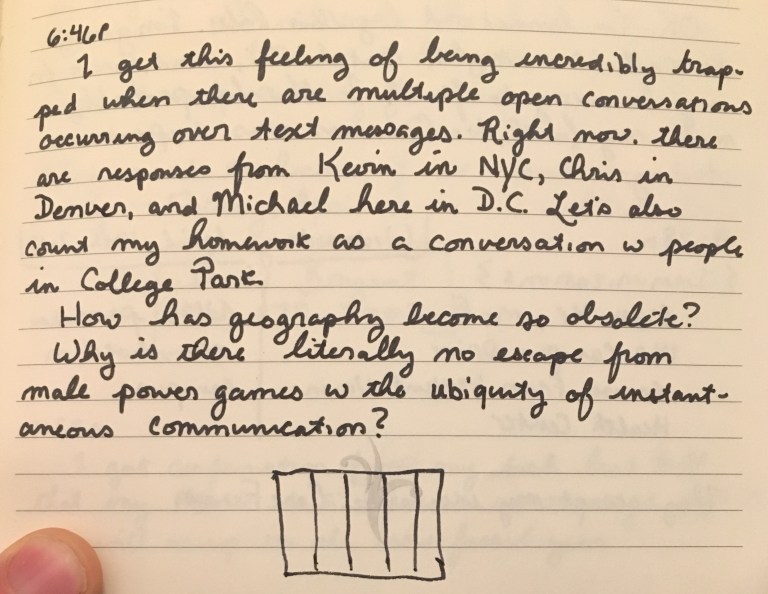 6:46P
I get this feeling of being incredibly trap-
ped when there are multiple open conversations
occurring over text messages. Right now, there
are responses from Kevin in NYC, Chris in
Denver, and Michael here in D.C. Let's also
count my homework as a conversation w people
in College Park.
How has geography become so obsolete?
Why is there literally no escape from
male power games w the ubiquity of instant-
aneous communication?